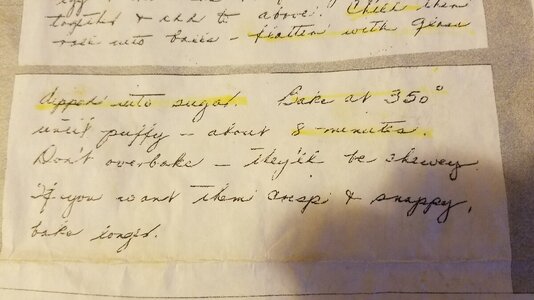 together & add to above. Chill then
roll into balls - flatten with glass
dipped into sugar. Bake at 350°
until puffy - about 8 minutes.
Don't overbake - they'll be chewey.
If you want them crisp & snappy,
bake longer.